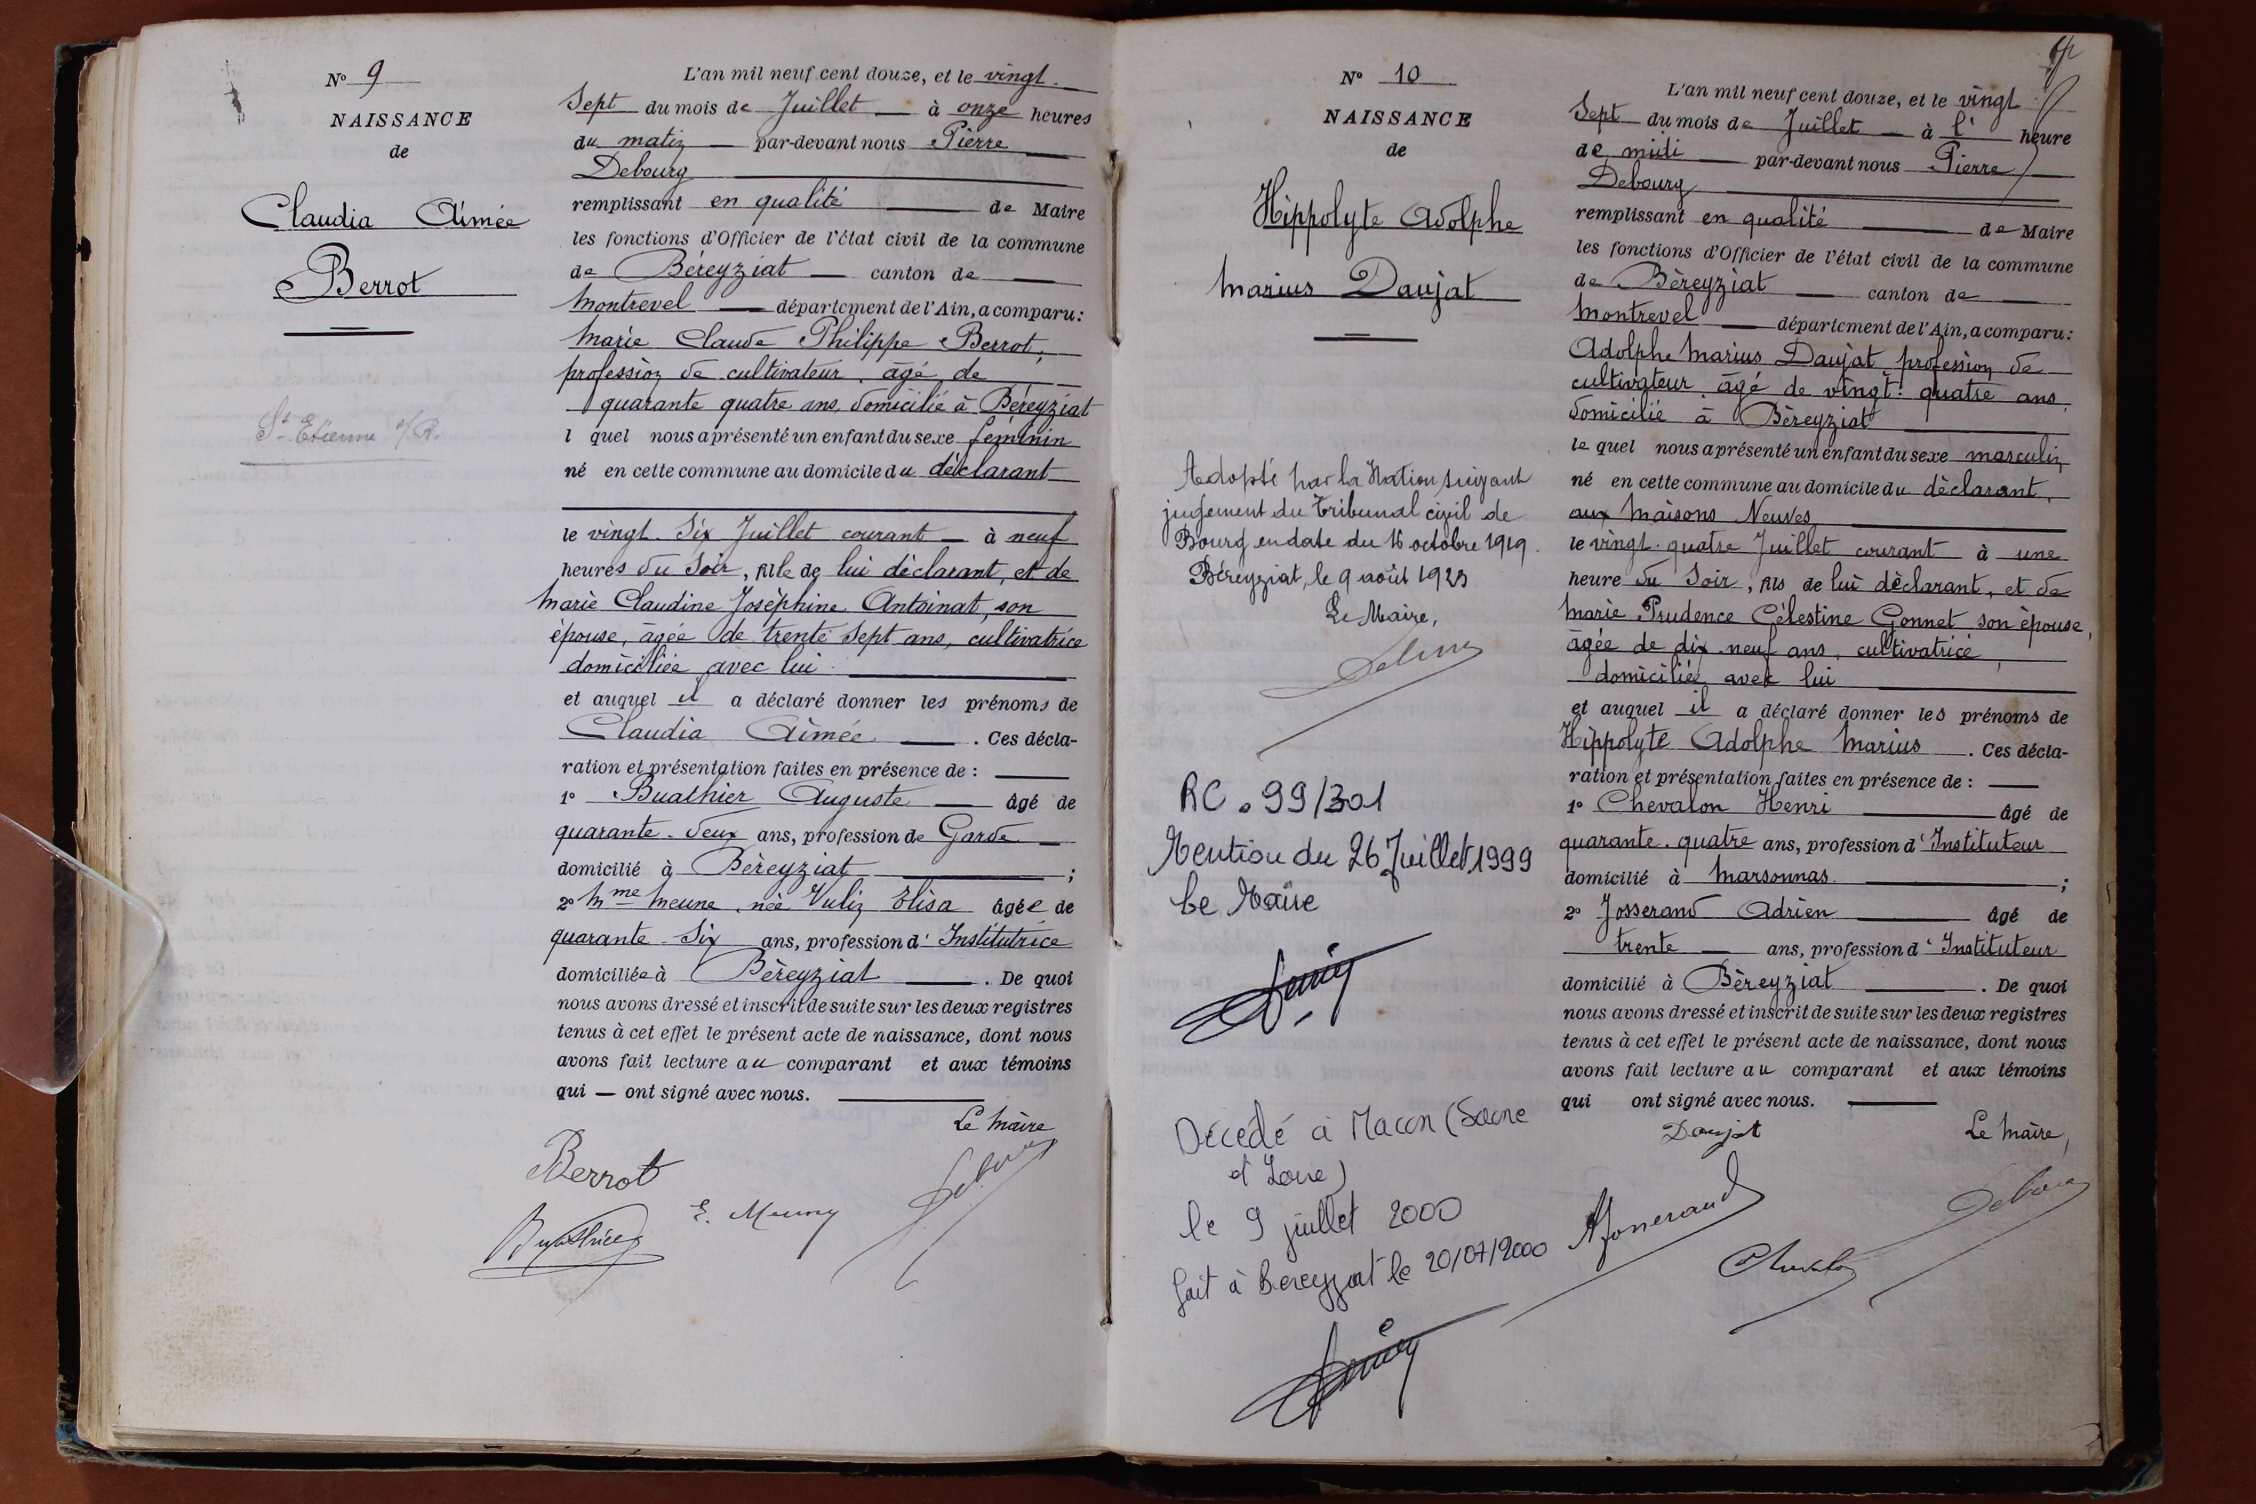 N° 9
NAISSANCE
de
Claudia Aimée
Berrot
St Etienne s/R.
L'an mil neuf cent douze, et le vingt
Sept du mois de Juillet — à onze heures
du matin — par-devant nous Pierre
Debourg
remplissant en qualité de Maire
les fonctions d'Officier de l'état civil de la commune
de Béreyziat — canton de —
Montrevel — département de l'Ain, a comparu:
Marie Claude Philippe Berrot,
profession de cultivateur, âgé de
quarante quatre ans, domicilié à Béreyziat
l quel nous a présenté un enfant du sexe féminin
né en cette commune au domicile du déclarant
le vingt-six Juillet courant — à neuf
heures du Soir, fille de lui déclarant, et de
Marie Claudine Joséphine Antoinat, son
épouse, âgée de trente sept ans, cultivatrice
domiciliée avec lui
et auquel il a déclaré donner les prénoms de
Claudia Aimée — . Ces décla-
ration et présentation faites en présence de :
1° Buathier Auguste — âgé de
quarante-deux ans, profession de Garde —
domicilié à Béreyziat ;
2° Mme Meune, née Vuliz Elisa âgée de
quarante-six ans, profession d' Institutrice
domiciliée à Béreyziat . De quoi
nous avons dressé et inscrit de suite sur les deux registres
tenus à cet effet le présent acte de naissance, dont nous
avons fait lecture au comparant et aux témoins
qui — ont signé avec nous.
Le Maire
Berrot
Buathier
E. Meuny
Debourg
N° 10
NAISSANCE
de
Hippolyte Adolphe
Marius Daujat
Adopté par la Nation suivant
jugement du Tribunal civil de
Bourg en date du 16 octobre 1919.
Béreyziat, le 9 août 1923
Le Maire,
RC. 99/301
Mention du 26 Juillet 1999
Le Maire
Décédé à Macon (Saone
et Loire)
le 9 juillet 2000
fait à Bereyziat le 20/07/2000
L'an mil neuf cent douze, et le vingt
Sept du mois de Juillet — à l' heure
de midi — par-devant nous Pierre
Debourg
remplissant en qualité de Maire
les fonctions d'Officier de l'état civil de la commune
de Bèreyziat — canton de —
Montrevel — département de l'Ain, a comparu:
Adolphe Marius Daujat profession de
cultivateur âgé de vingt-quatre ans,
domicilié à Bèreyziat
le quel nous a présenté un enfant du sexe masculin
né en cette commune au domicile du dèclarant,
aux Maisons Neuves
le vingt-quatre Juillet courant à une
heure du Soir, fils de lui dèclarant, et de
Marie Prudence Célestine Gonnet son èpouse,
âgée de dix-neuf ans, cultivatrice,
domiciliée avec lui
et auquel il a déclaré donner les prénoms de
Hippolyte Adolphe Marius — . Ces décla-
ration et présentation faites en présence de :
1° Chevalon Henri âgé de
quarante-quatre ans, profession d' Instituteur
domicilié à Marsonnas ;
2° Josserand Adrien âgé de
trente — ans, profession d' Instituteur
domicilié à Bèreyziat . De quoi
nous avons dressé et inscrit de suite sur les deux registres
tenus à cet effet le présent acte de naissance, dont nous
avons fait lecture au comparant et aux témoins
qui ont signé avec nous.
Daujat
Le Maire,
AJosserand
Chevalon
Debourg